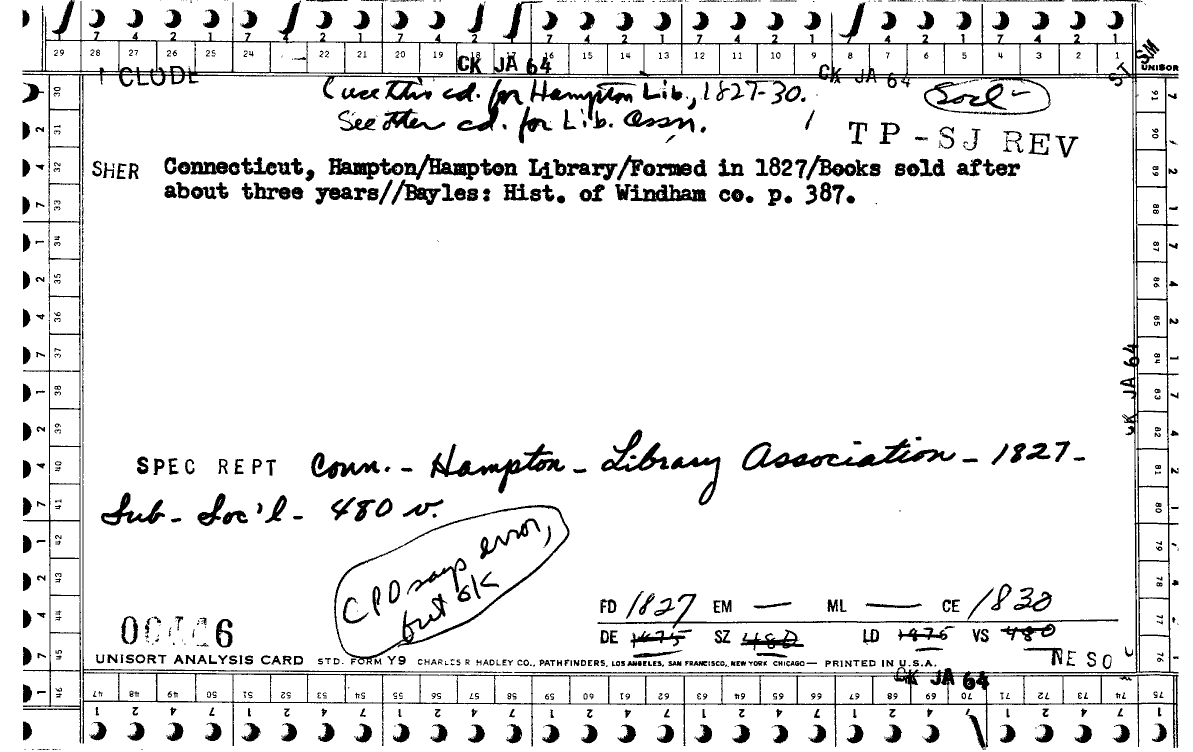 7 4 2 1 7 4 2 1 7 4 2 1 7 4 2 1 7 4 2 1 7 4 2 1 7 4 2 1
29 28 27 26 25 24 22 21 20 19 18 17 16 15 14 13 12 11 10 9 8 7 6 5 4 3 2 1
CK JA 64
CK JA 64
ST SM
UNISOR
CLUDE
use this cd. for Hampton Lib., 1827-30.
Socl-
See other cd. for Lib. Assn.
TP-SJ REV
SHER Connecticut, Hampton/Hampton Library/Formed in 1827/Books sold after
about three years//Bayles: Hist. of Windham co. p. 387.
CK JA 64
SPEC REPT Conn. - Hampton - Library Association - 1827 -
Sub - Soc'l - 480 v.
CPD says error,
but o/k
FD 1827 EM — ML — CE 1830
DE 1875 SZ 480 LD 1875 VS 480
6
NESO
UNISORT ANALYSIS CARD STD. FORM Y9 CHARLES R HADLEY CO., PATHFINDERS, LOS ANGELES, SAN FRANCISCO, NEW YORK CHICAGO — PRINTED IN U.S.A.
CK JA 64
46 47 48 49 50 51 52 53 54 55 56 57 58 59 60 61 62 63 64 65 66 67 68 69 70 71 72 73 74 75
1 2 4 7 1 2 4 7 1 2 4 7 1 2 4 7 1 2 4 7 1 2 4 7 1 2 4 7 1